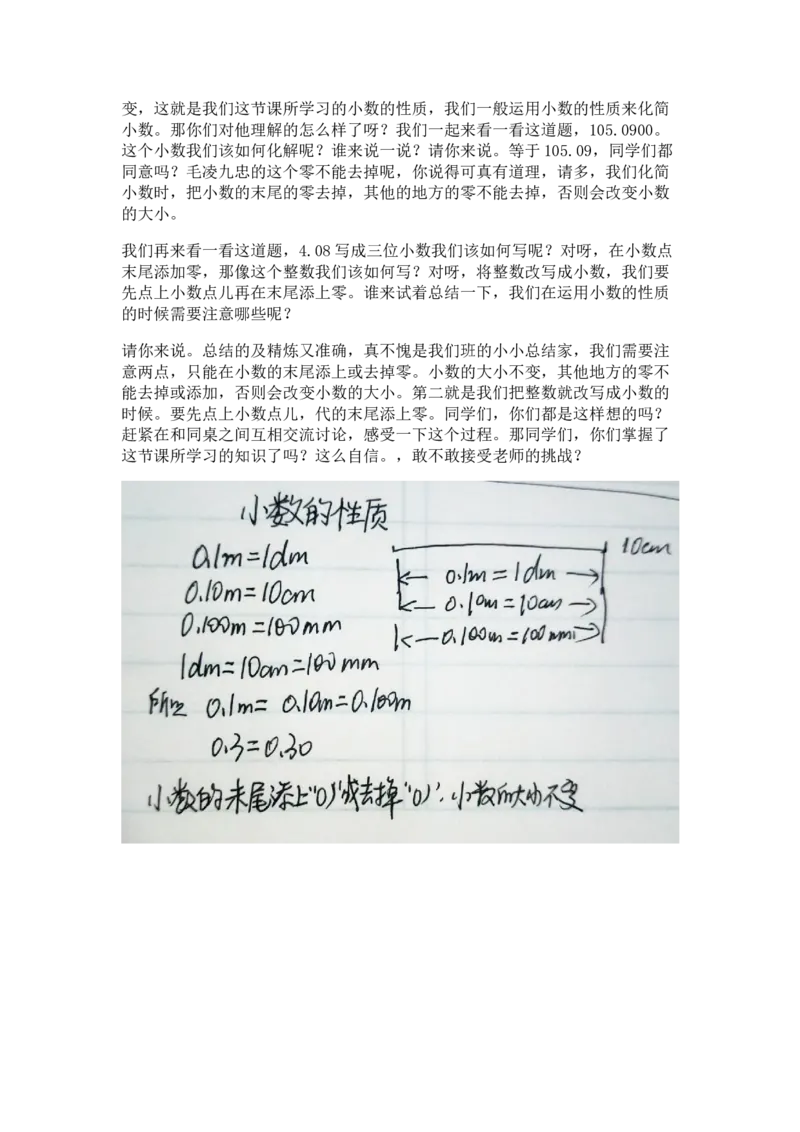 变，这就是我们这节课所学习的小数的性质，我们一般运用小数的性质来化简
小数。那你们对他理解的怎么样了呀？我们一起来看一看这道题，105.0900。
这个小数我们该如何化解呢？谁来说一说？请你来说。等于 105.09，同学们都
同意吗？毛凌九忠的这个零不能去掉呢，你说得可真有道理，请多，我们化简
小数时，把小数的末尾的零去掉，其他的地方的零不能去掉，否则会改变小数
的大小。
我们再来看一看这道题，4.08 写成三位小数我们该如何写呢？对呀，在小数点
末尾添加零，那像这个整数我们该如何写？对呀，将整数改写成小数，我们要
先点上小数点儿再在末尾添上零。谁来试着总结一下，我们在运用小数的性质
的时候需要注意哪些呢？
请你来说。总结的及精炼又准确，真不愧是我们班的小小总结家，我们需要注
意两点，只能在小数的末尾添上或去掉零。小数的大小不变，其他地方的零不
能去掉或添加，否则会改变小数的大小。第二就是我们把整数就改写成小数的
时候。要先点上小数点儿，代的末尾添上零。同学们，你们都是这样想的吗？
赶紧在和同桌之间互相交流讨论，感受一下这个过程。那同学们，你们掌握了
这节课所学习的知识了吗？这么自信。，敢不敢接受老师的挑战？
小数的性质
0.1m=1dm
0.10m=10cm
0.100m=100mm
1dm=10cm=100mm
所以 0.1m= 0.10m=0.100m
0.3=0.30
小数的末尾添上“0”或去掉“0”，小数的大小不变
10cm
0.1m=1dm
0.10m=10cm
0.100m=100mm